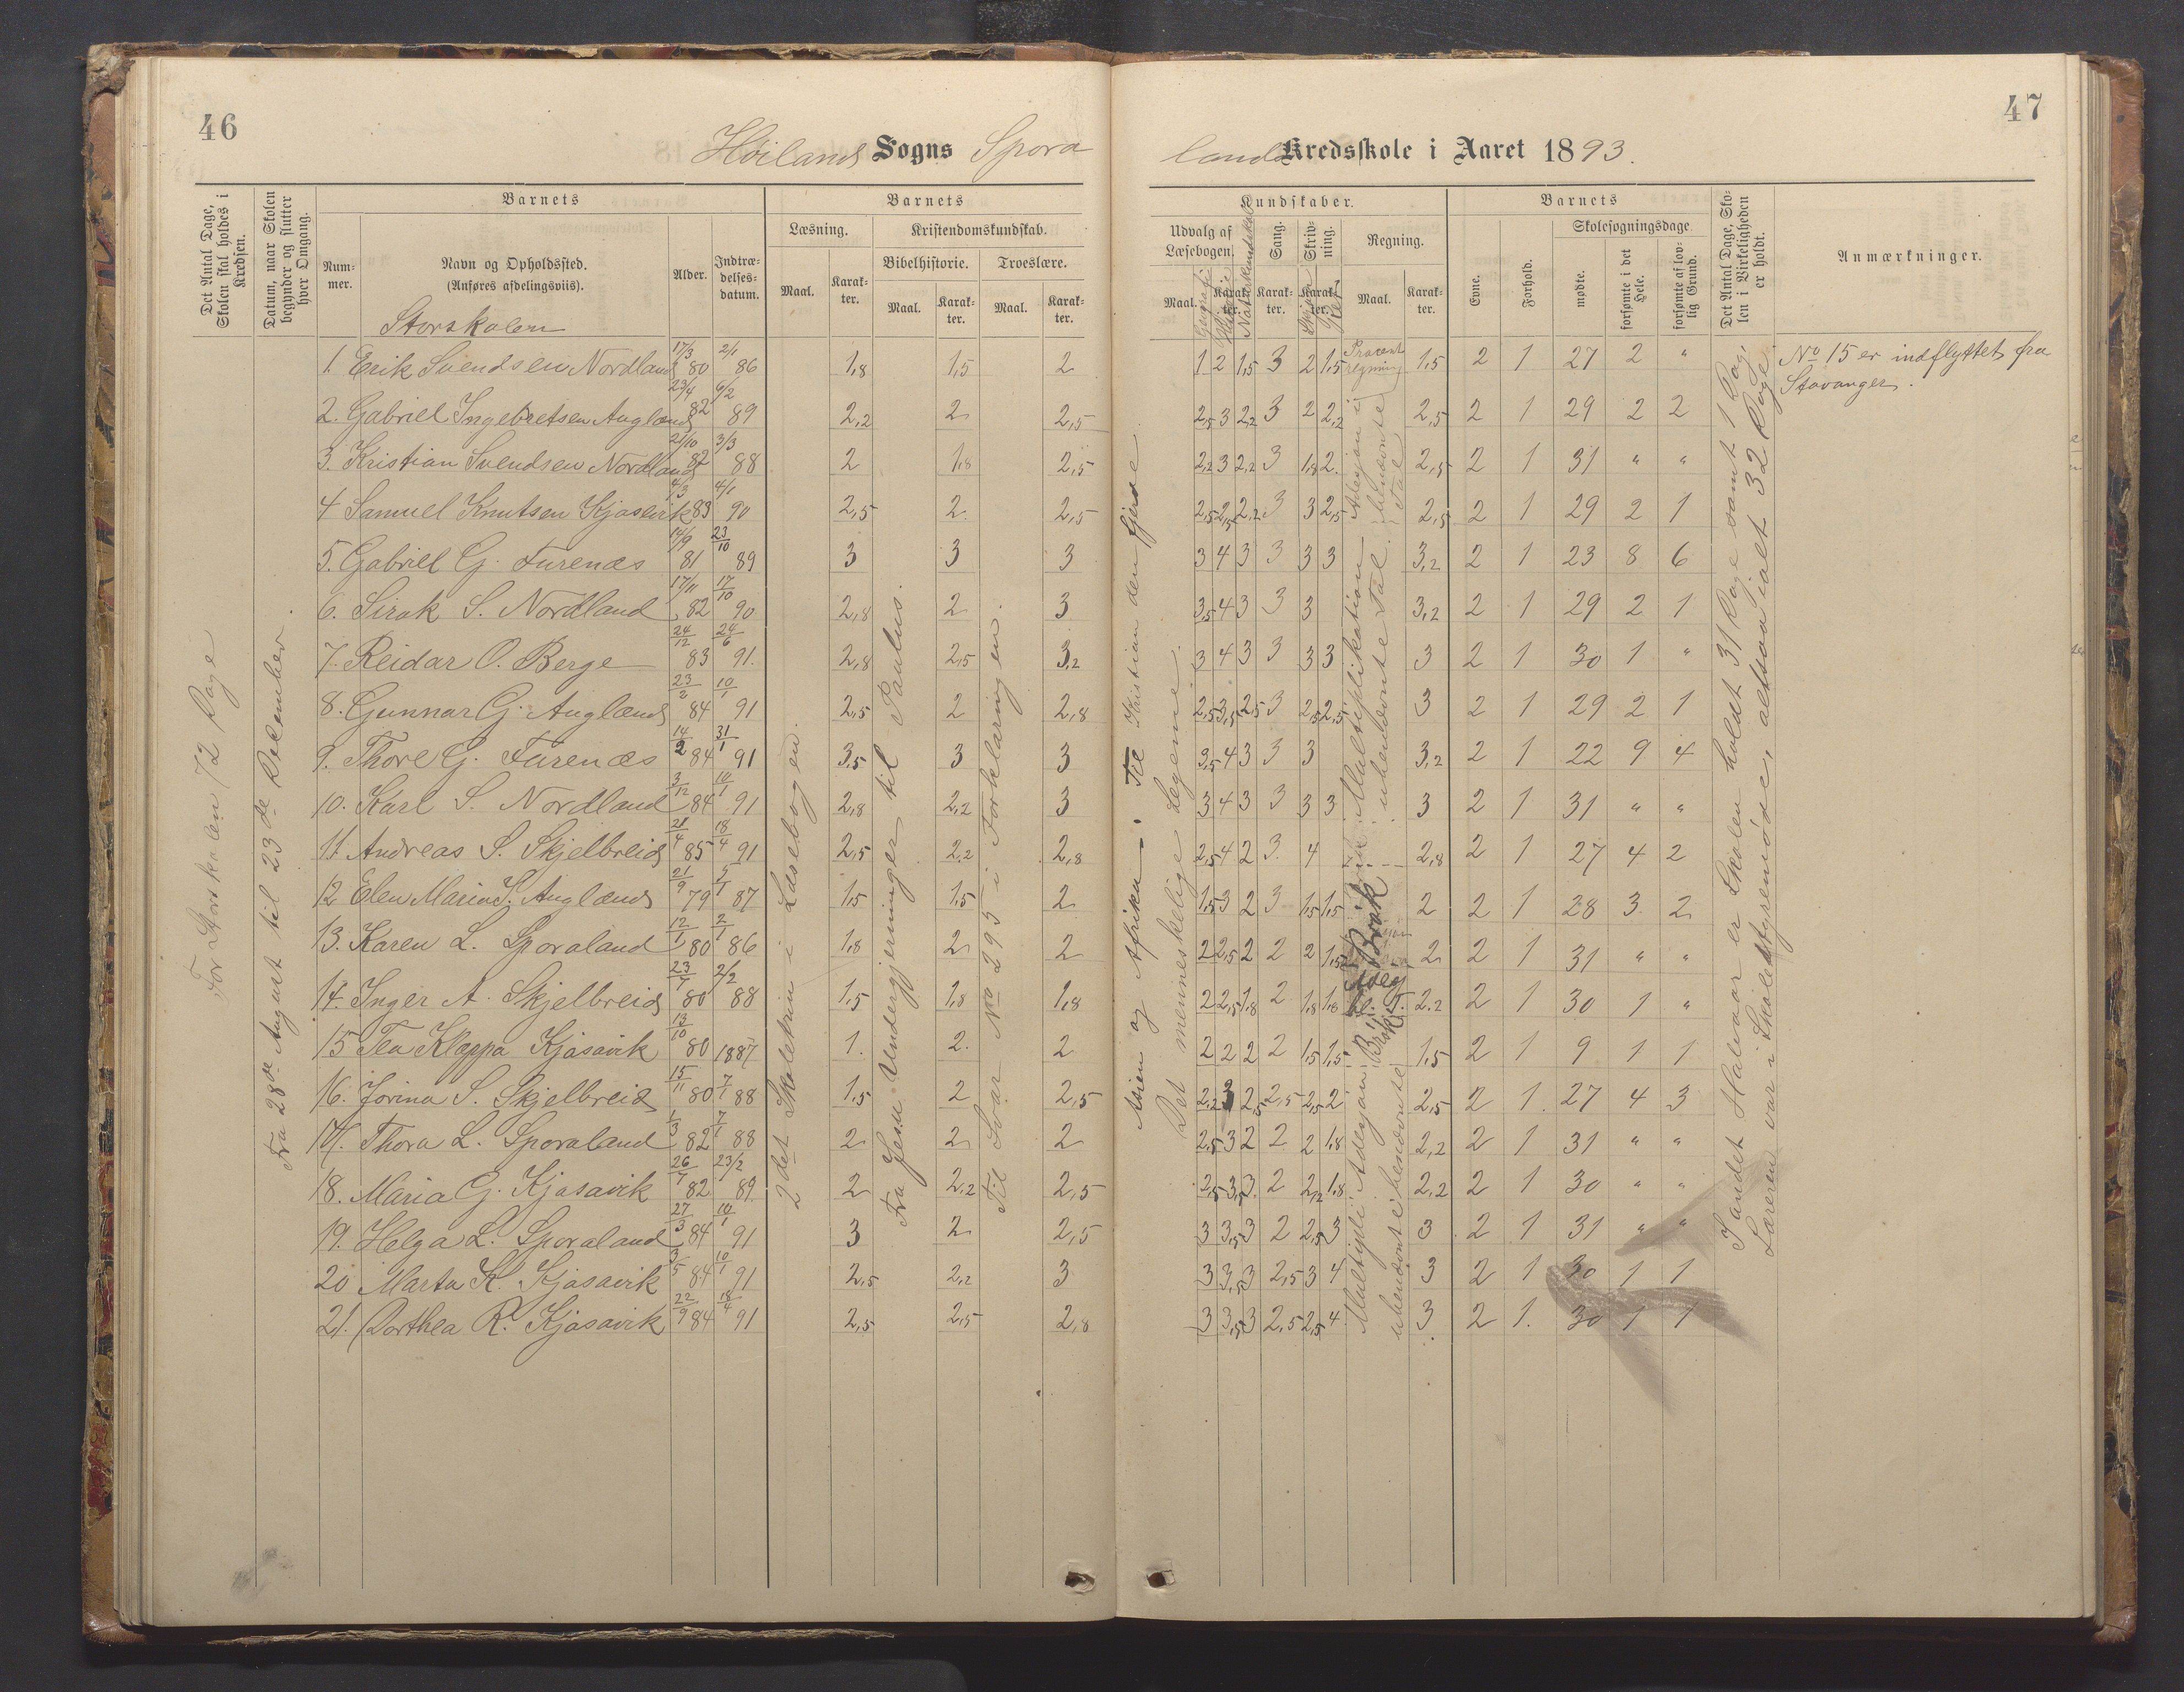 46
47
Høilands Sogns Spora
lands Kredsskole i Aaret 1893.
Det Antal Dage, Skolen skal holdes i Kredsen.
Datum, naar Skolen begynder og slutter hver Omgang.
Barnets
Num-mer.
Navn og Opholdssted.
(Anføres afdelingsviis).
Alder.
Indtræ-delses-datum.
Barnets
Læsning.
Maal.
Karak-ter.
Kristendomskundskab.
Bibelhistorie.
Maal.
Karak-ter.
Troeslære.
Maal.
Karak-ter.
Kundskaber.
Udvalg af Læsebogen.
Maal.
Karak-ter.
Geografi
Historie
Naturkundskab
Sang.
Karak-ter.
Skriv-ning.
Karak-ter.
Regning.
Maal.
Karak-ter.
Barnets
Evne.
Forhold.
Skolesøgningsdage
mødte.
forsømte i det Hele.
forsømte af lov-lig Grund.
Det Antal Dage, Sko-len i Virkeligheden er holdt.
Anmærkninger.
Storskolen
For Storskolen 72 Dage
Fra 28de August til 23de December.
2det Skoletrin i Læsebogen.
Fra Jesu Undergjerninger til Paulus.
Til Svar No 295 i Forklaringen.
Asien og Afrika - Til Kristian den fjerde
Det menneskelige Legeme.
1. Erik Svendsen Nordland 17/3 80 2/1 86 1,8 1,5 2 1 2 1,5 3 2 1,5 Procent regning 1,5 2 1 27 2 "
2. Gabriel Ingebretsen Auglænd 23/4 82 6/2 89 2,2 2 2,5 2,5 3 2,2 3 2 2,2 2,5 2 1 29 2 2
3. Kristian Svendsen Nordland 21/10 82 3/3 88 2 1,8 2,5 2,2 3 2,2 3 1,8 2. 2,5 2 1 31 " "
4 Samuel Knutsen Kjosevik 4/3 83 4/1 90 2,5 2. 2,5 2,5 2,5 2,2 3 3 2,5 2,5 2 1 29 2 1
5. Gabriel G. Furenæs 14/9 81 23/10 89 3 3 3 3 4 3 3 3 3 3,2 2 1 23 8 6
6. Sirak S. Nordland 17/11 82 17/10 90 2,8 2 3 3,5 4 3 3 3 3,2 2 1 29 2 1
7. Reidar O. Berge 24/12 83 24/6 91. 2,8 2,5 3,2 3 4 3 3 3 3 3 2 1 30 1 "
8. Gunnar G. Auglænd 23/2 84 10/1 91 2,5 2 2,8 2,5 3,5 2,5 3 2,5 2,5 3 2 1 29 2 1
9. Thore G. Furenæs 14/2 84 31/1 91 3,5 3 3 3,5 4 3 3 3 3,2 2 1 22 9 4
10. Karl S. Nordland 3/12 84 10/1 91 2,8 2,2 3 3 4 3 3 3 3 3 2 1 31 " "
11 Andreas S. Skjelbreid 21/4 85 18/4 91 2,5 2,2 2,8 2,5 4 2 3. 4 2,8 2 1 27 4 2
12 Elen Maria S. Auglænd 21/9 79 5/1 87 1,5 1,5 2 1,5 3 2 3 1,5 1,5 2 2 1 28 3 2
13. Karen L. Sporaland 12/1 80 2/1 86 1,8 2 2 2 2,5 2 2 2 1,5 2 2 1 31 " "
14. Inger A. Skjelbreid 23/4 80 2/2 88 1,5 1,8 1,8 2 2,5 1,8 2 1,8 1,8 2,2 2 1 30 1 "
15 Tea Kleppa Kjosavik 13/10 80 1887 1. 2. 2 2 2 2 2 1,5 1,5 1,5 2 1 9 1 1
16. Jorina S. Skjelbreid 15/11 80 7/1 88 1,5 2 2,5 2,2 3 2,5 2,5 2,5 2 2,5 2 1. 27 4 3
17. Thora L. Sporaland 1/3 82 7/1 88 2 2 2 2,5 3 2 2 2 1,8 2,2 2 1 31 " "
18. Maria G. Kjosavik 26/7 82 23/2 89 2 2,2 2,5 2,5 3,5 3. 2 2,2 1,8 2,2 2 1 30 " "
19. Helga L. Sporaland 27/3 84 10/1 91 3 2 2,5 3 3,5 3 2 2,5 3 3 2 1 31 " "
20 Marta K. Kjosavik 3/5 84 10/1 91 2,5 2,2 3 3 3,5 3 2,5 3 4 3 2 1 30 1 1
21. Dorthea R. Kjosavik 22/9 84 18/4 91 2,5 2,5 2,8 3 3,5 3 2,5 2,5 4 3 2 1. 30 1 1
Addisjon i benævnte Tal
Multiplikation i ubenævnte Tal.
Brøk
Multipli. Addisjon i ubenævnte i benævnte
I andet Halvaar er Skolen holdt 31 Dage samt 1 Dag, Læreren var i Skolestyremøde, altsaa ialt 32 Dage.
No 15 er indflyttet fra
Stavanger.